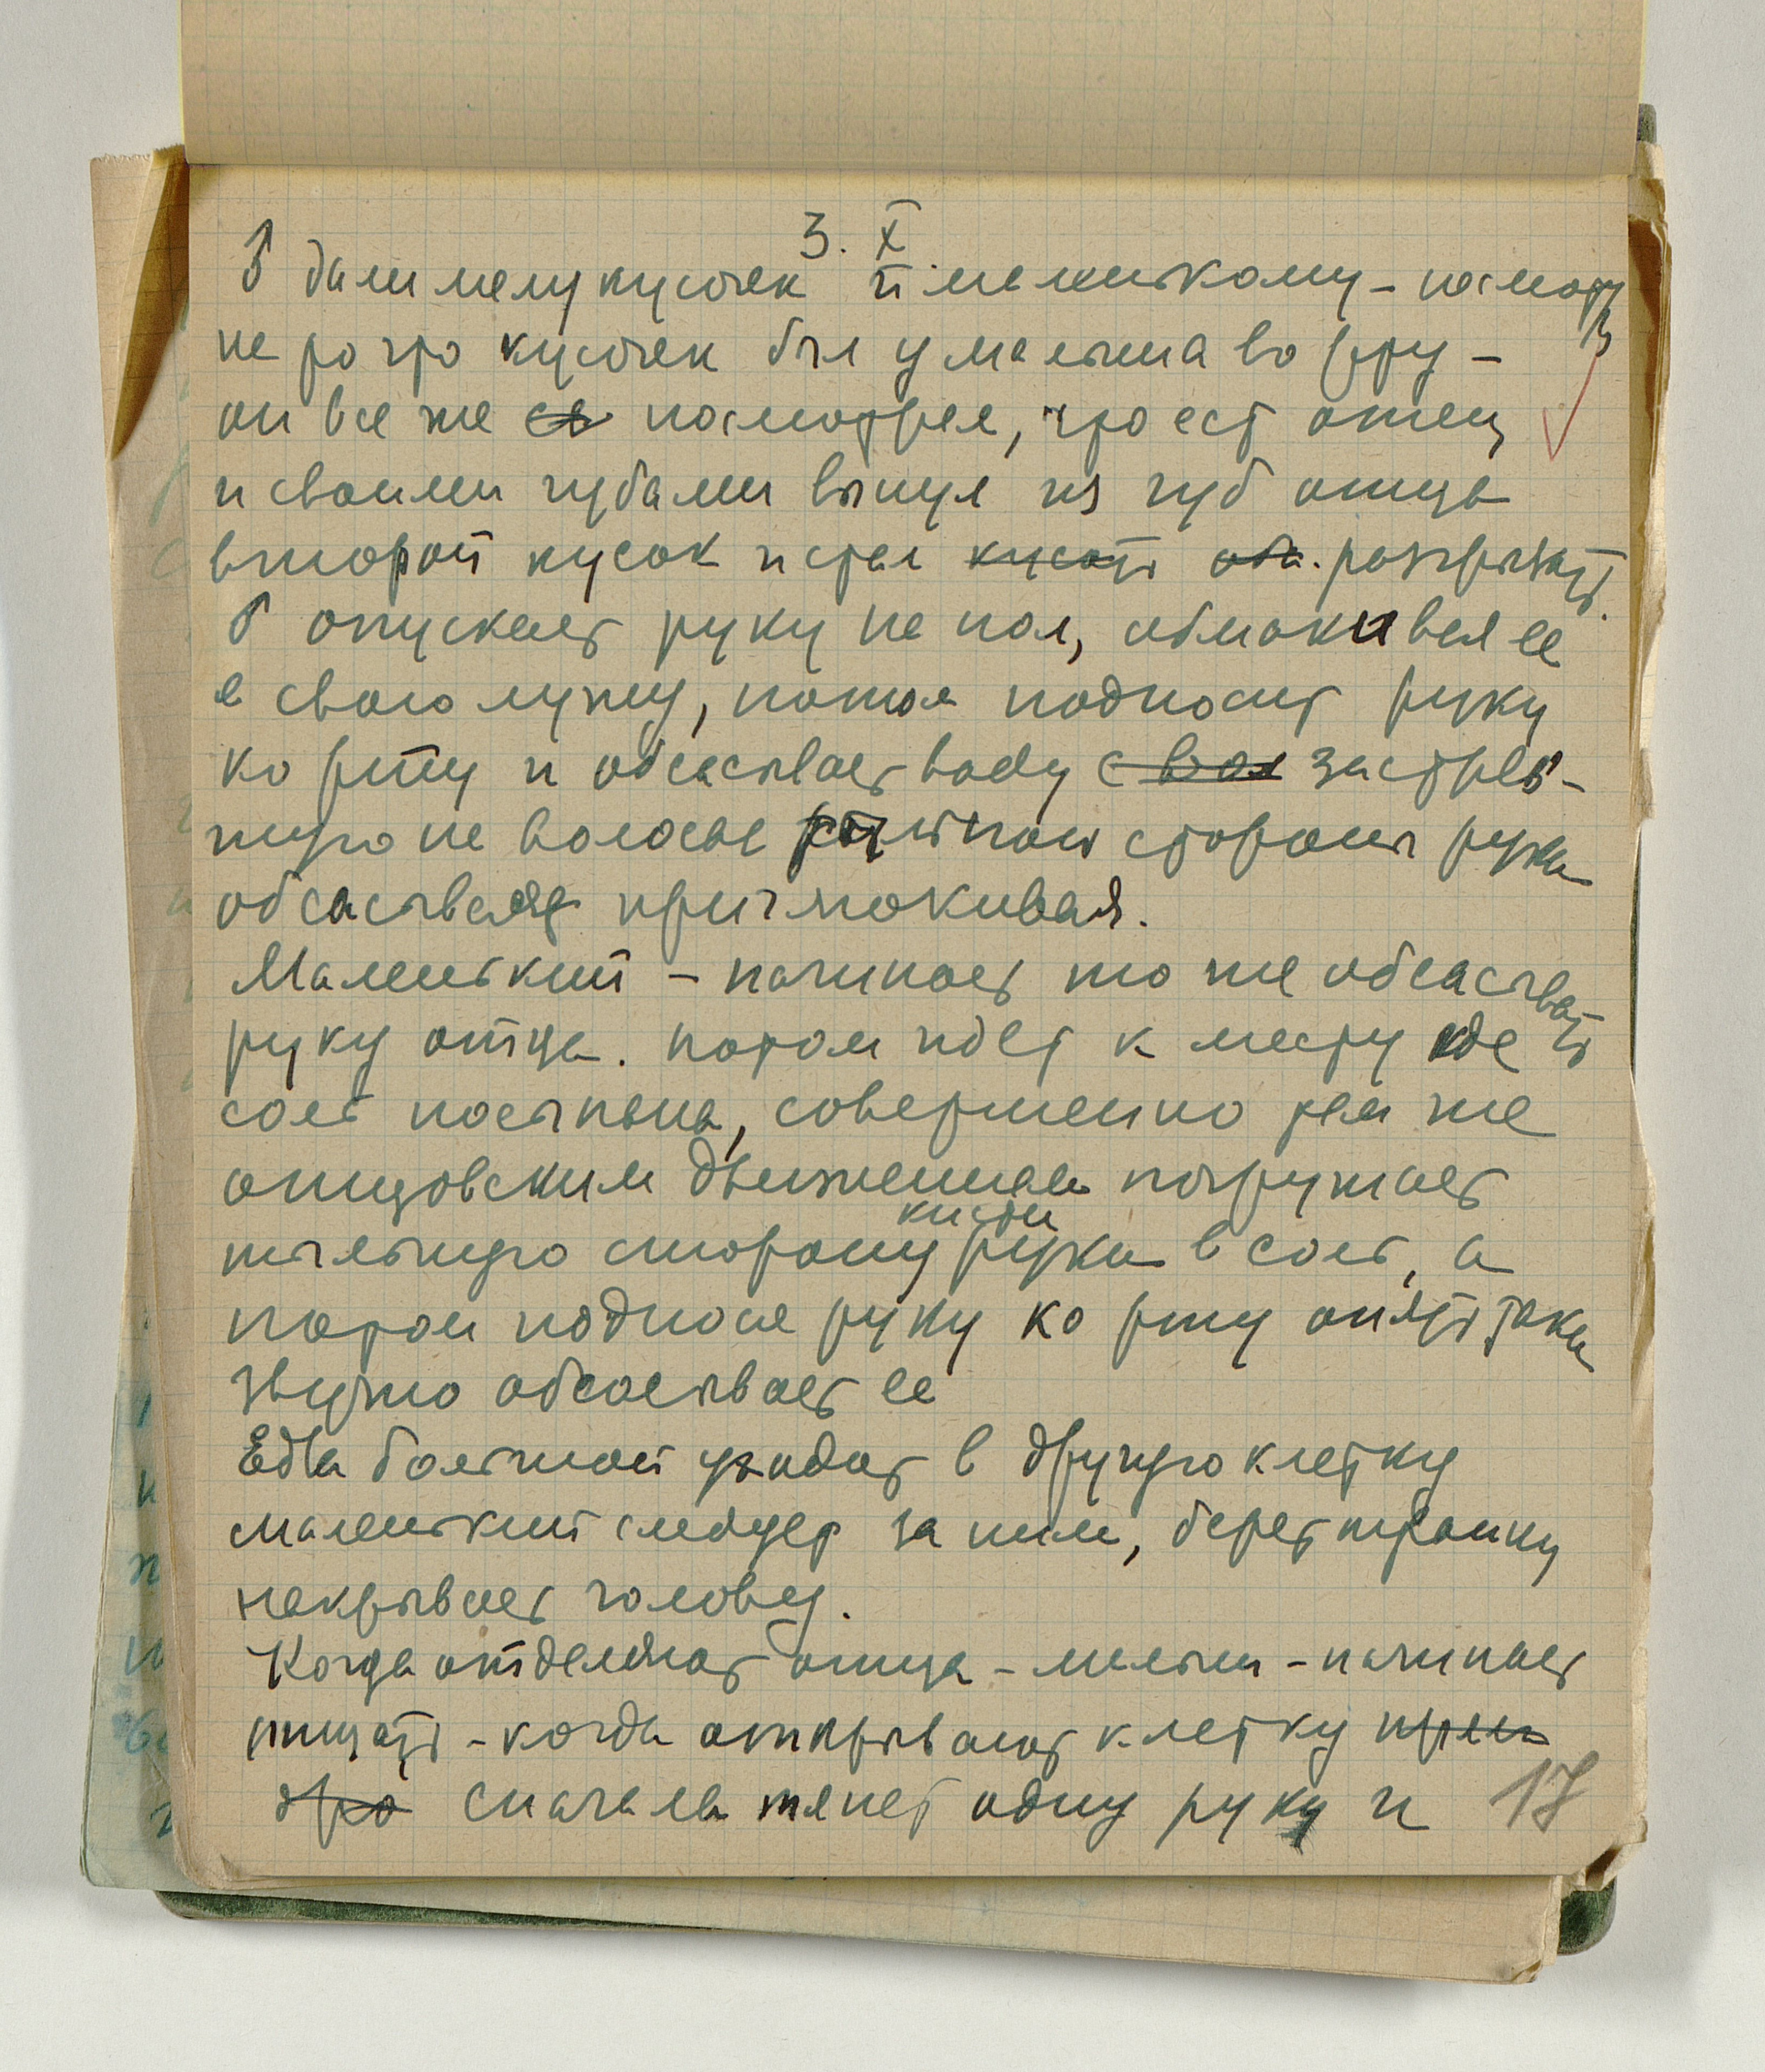 3. X.
Б дали мелу кусочек и маленькому - несмотр
я
на то что кусочек был у малыша во рту -
он все же ев посмотрел, что ест отец
и своими губами вынул из губ отца
второй кусок и стал кусать разгрызать.
Б опускает руку на пол, обмакивая ее
в свою лужу, потом подносит руку
ко рту и обсасывает воду свои застрев-
шую на волосах тыльной стороны руки
обсасывая причмокивая.
Маленький - начинает то же обсасывать
руку отца. потом идет к месту где
соль посыпана, совершенно тем же
отцовским движением погружает
кисти
тыльную сторону руки в соль, а
потом поднося руку ко рту опять таки
звучно обсасывает ее
Едва большой уходит в другую клетку
маленький следует за ним, берет тряпку
накрывает голову.
Когда отделяют отца - малыш - начинает
пищать - когда открывают клетку
сначала тянет одну руку и
17